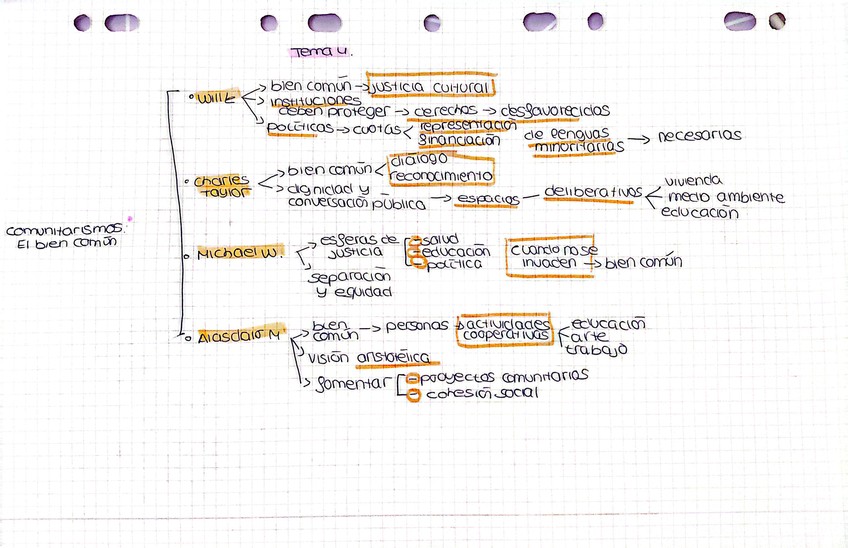 Tema 4.
• Will K
bien común → justicia cultural
instituciones
deben proteger → derechos → desfavorecidos
políticas → cuotas < representación
financiación
de lenguas
minoritarias → necesarias
• Charles
Taylor
bien común < diálogo
reconocimiento
dignidad y
conversación pública → espacios — deliberativos
vivienda
medio ambiente
educación
comunitarismos:
El bien común
• Michael W.
esferas de
justicia
- salud
- educación
- política
cuando no se
invaden → bien común
separación
y equidad
• Alasdair M
bien
común → personas → actividades
cooperativas
educación
arte
trabajo
visión aristotélica
fomentar
- proyectos comunitarios
- cohesión social